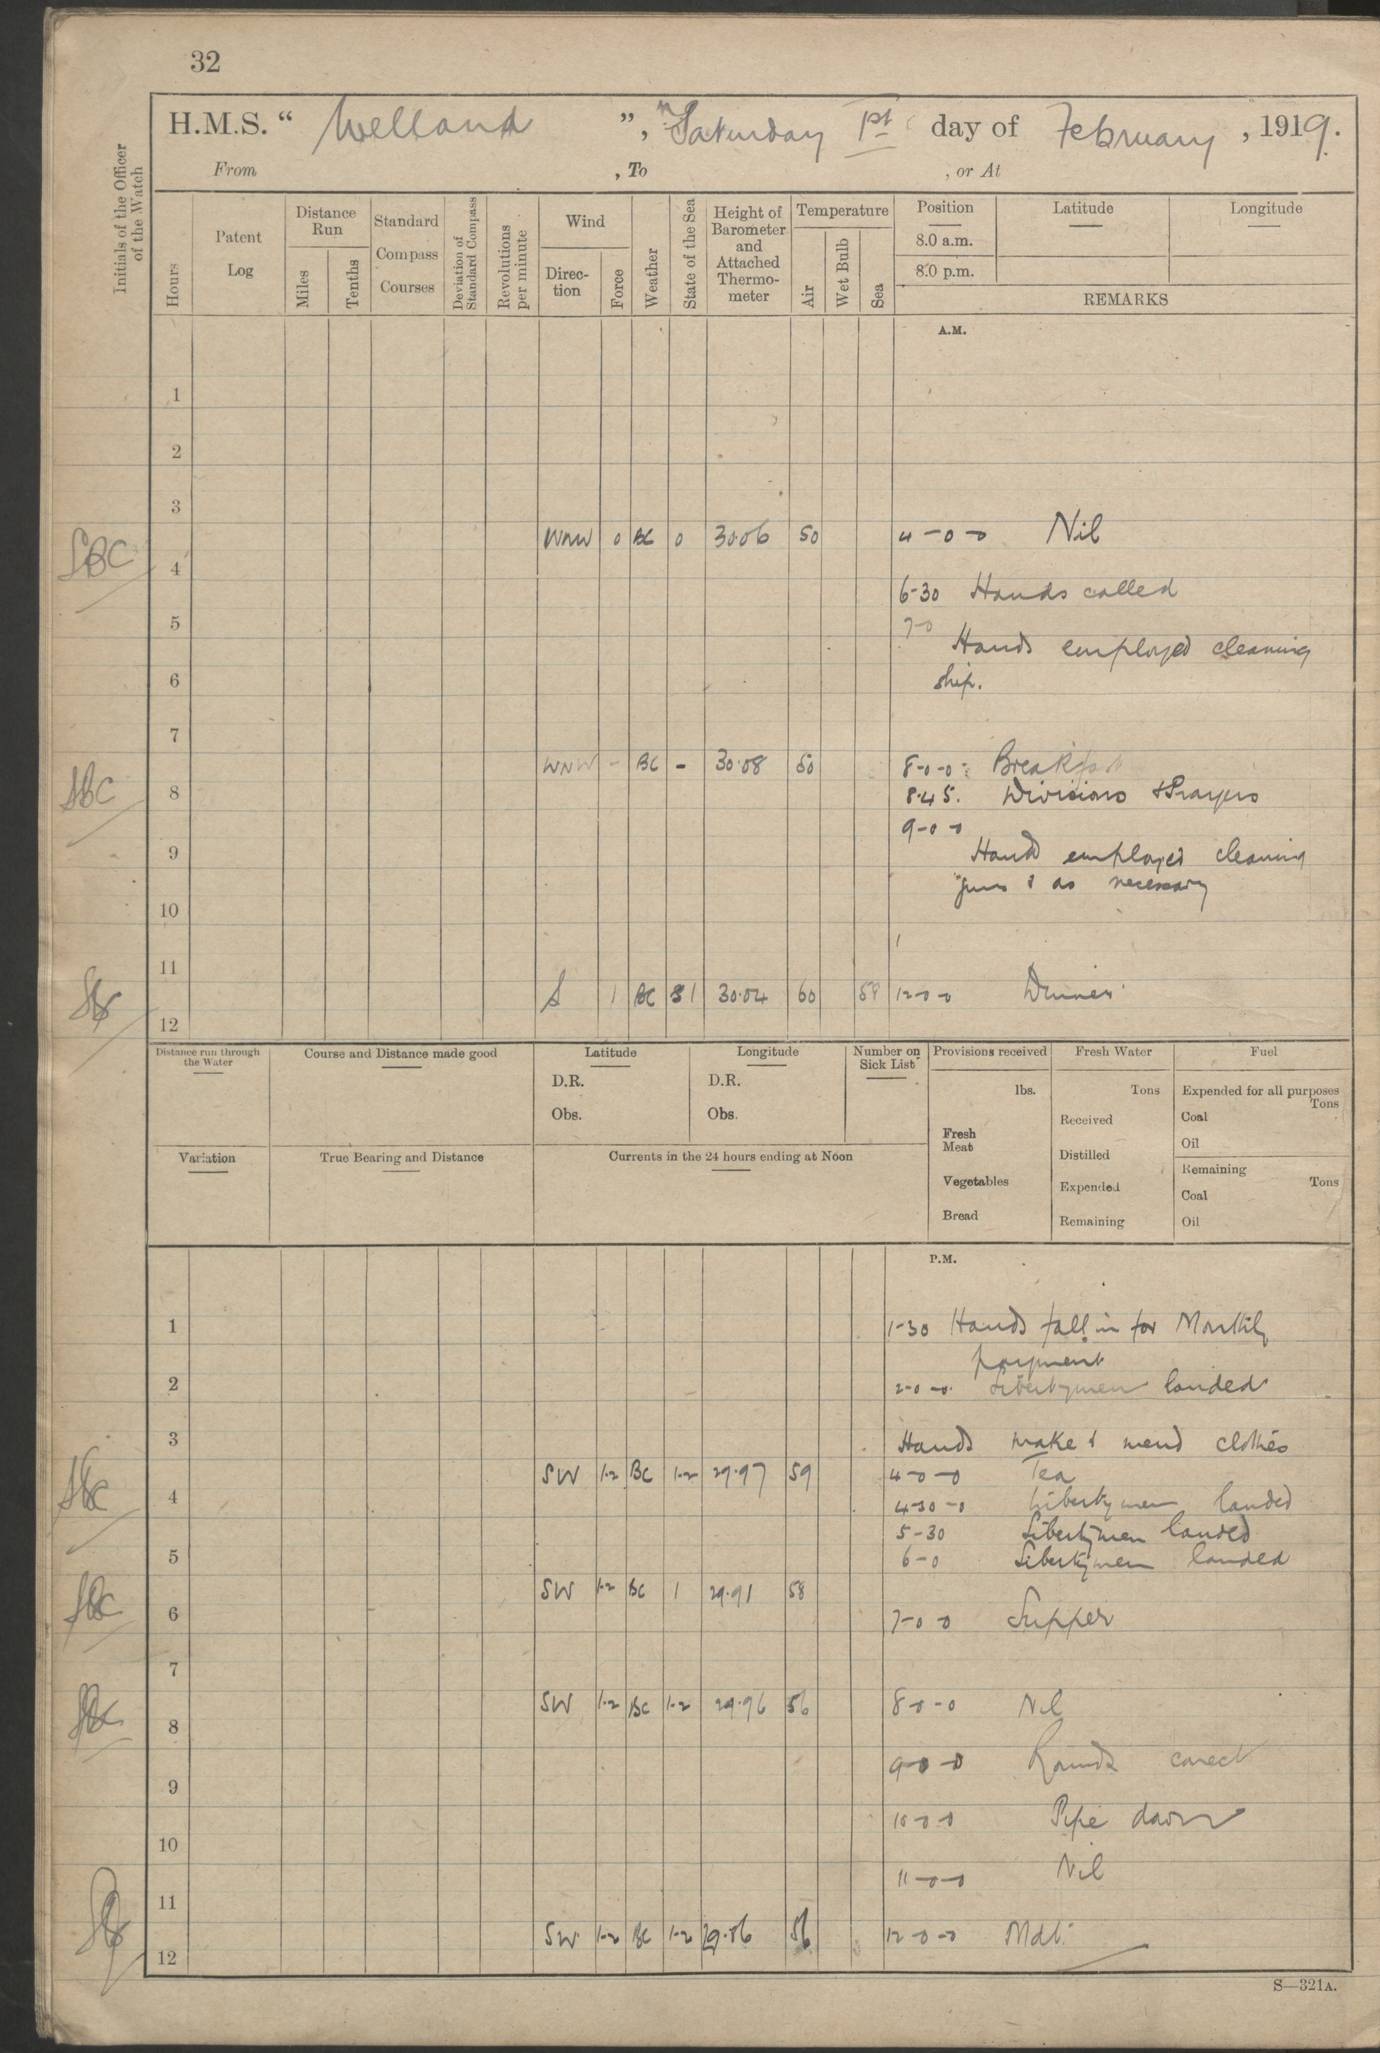 32
H.M.S. " Welland ", Saturday 1st day of February, 1919.
From , To , or At
Initials of the Officer of the Watch
Hours
Patent Log
Distance Run
Miles
Tenths
Standard Compass Courses
Deviation of Standard Compass
Revolutions per minute
Wind
Direction
Force
Weather
State of the Sea
Height of Barometer and Attached Thermometer
Temperature
Air
Wet Bulb
Sea
Position
8.0 a.m.
8.0 p.m.
Latitude
Longitude
REMARKS
A.M.
1
2
3
WNW 0 BC 0 30.06 50 4-0-0 Nil
SBC 4
6-30 Hands called
5 7-0
Hands employed cleaning
6 ship.
7
WNW - BC - 30.08 50 8-0-0 Breakfast
SBC 8 8.45. Divisions & Prayers
9-0-0
9 Hands employed cleaning
guns & as necessary
10
11
S 1 BC 1 30.04 60 12-0-0 Dinner
12
Distance run through the Water
Course and Distance made good
Latitude
D.R.
Obs.
Longitude
D.R.
Obs.
Number on Sick List
Provisions received
lbs.
Fresh Meat
Vegetables
Bread
Fresh Water
Tons
Received
Distilled
Expended
Remaining
Fuel
Expended for all purposes
Tons
Coal
Oil
Remaining
Tons
Coal
Oil
Variation
True Bearing and Distance
Currents in the 24 hours ending at Noon
P.M.
1 1-30 Hands fall in for Monthly
payment
2 2-0-0 Libertymen landed
3 Hands make & mend clothes
SW 1-2 BC 1-2 29.97 59 4-0-0 Tea
SBC 4 4-30-0 Libertymen landed
5-30 Libertymen landed
5 6-0 Libertymen landed
SW 1-2 BC 1 29.91 58
SBC 6 7-0-0 Supper
7
SW 1-2 BC 1-2 29.96 56 8-0-0 Nil
SBC 8
9-0-0 Rounds correct
9
10-0-0 Pipe down
10
11-0-0 Nil
11
SW 1-2 BC 1-2 56 12-0-0 Mdt.
12
S—321A.